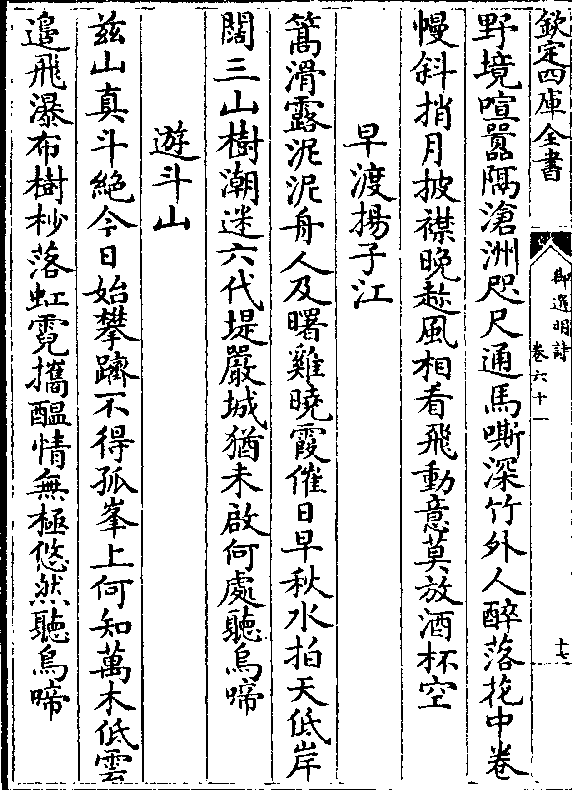 欽定四庫全書
御選明詩
卷六十一
十七
野境喧囂隔滄洲咫尺通馬嘶深竹外人醉落花中卷
幔斜捎月披襟晚趂風相看飛動意莫放酒杯空
早渡揚子江
篙滑露泥泥舟人及曙雞曉霞催日早秋水拍天低岸
闊三山樹潮迷六代堤嚴城猶未啟何處聽烏啼
遊斗山
兹山真斗絶今日始攀躋不得孤峯上何知萬木低雲
邉飛瀑布樹杪落虹霓攜醖情無極悠然聽鳥啼